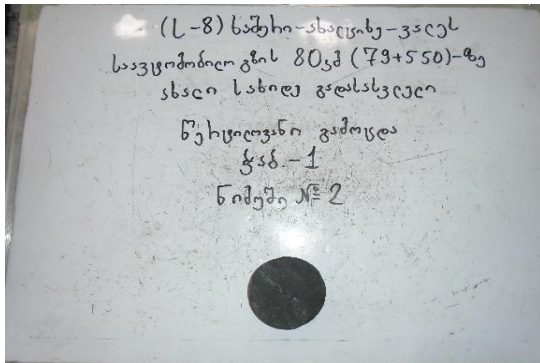 (ს-8) ხაშური-ახალციხე-ვალეს
საავტომობილო გზის 80კმ (79+550)-ზე
ახალი სახიდე გადასასვლელი
წერტილოვანი გამოცდა
ჭაბ.-1
ნიმუში №2